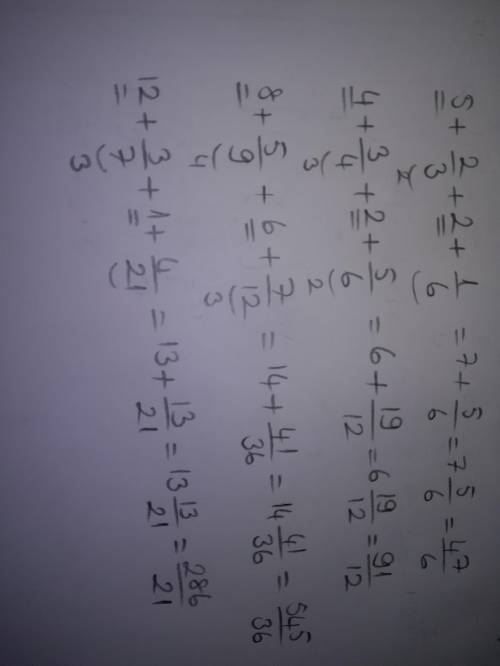 5 + 2/3 + 2 + 1/6 = 7 + 5/6 = 7 5/6 = 47/6
2
4 + 3/4 + 2 + 5/6 = 6 + 19/12 = 6 19/12 = 91/12
3 2
8 + 5/9 + 6 + 7/12 = 14 + 41/36 = 14 41/36 = 545/36
4 3
12 + 3/7 + 1 + 4/21 = 13 + 13/21 = 13 13/21 = 286/21
3